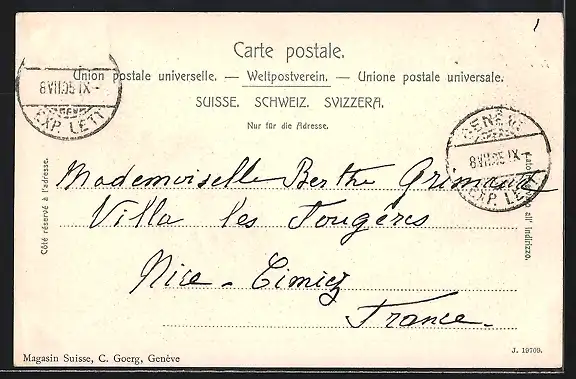 1
Carte postale.
Union postale universelle. — Weltpostverein. — Unione postale universale.
SUISSE. SCHWEIZ. SVIZZERA.
Nur für die Adresse.
8VII.05 IX-
EXP. LETT
GENÈVE
8VII.05 IX-
EXP. LETT
Côté réservé à l'adresse.
Mademoiselle Berthe Grimault
Villa les Fougères
Nice - Cimiez
France.
Magasin Suisse, C. Goerg, Genève
J. 19709.